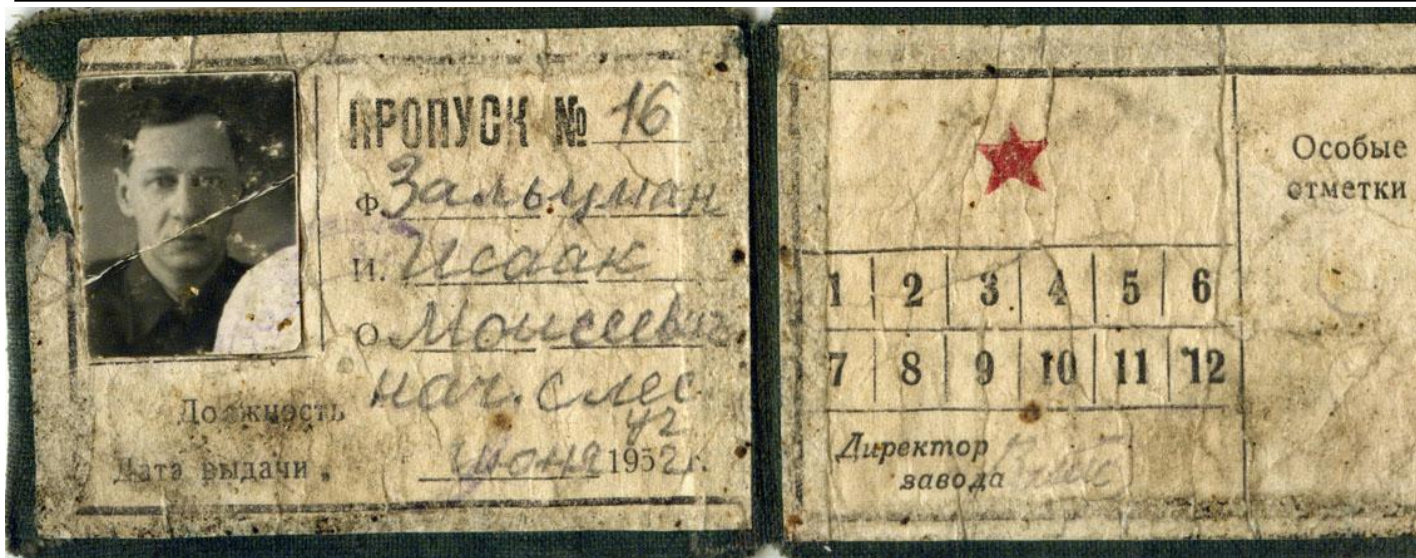 ПРОПУСК № 16
Ф. Зальцман
И. Исаак
О. Моисеевич
Должность нач. слес.
уч
Дата выдачи. июня 1952 г.
Особые
отметки
1 2 3 4 5 6
7 8 9 10 11 12
Директор
завода